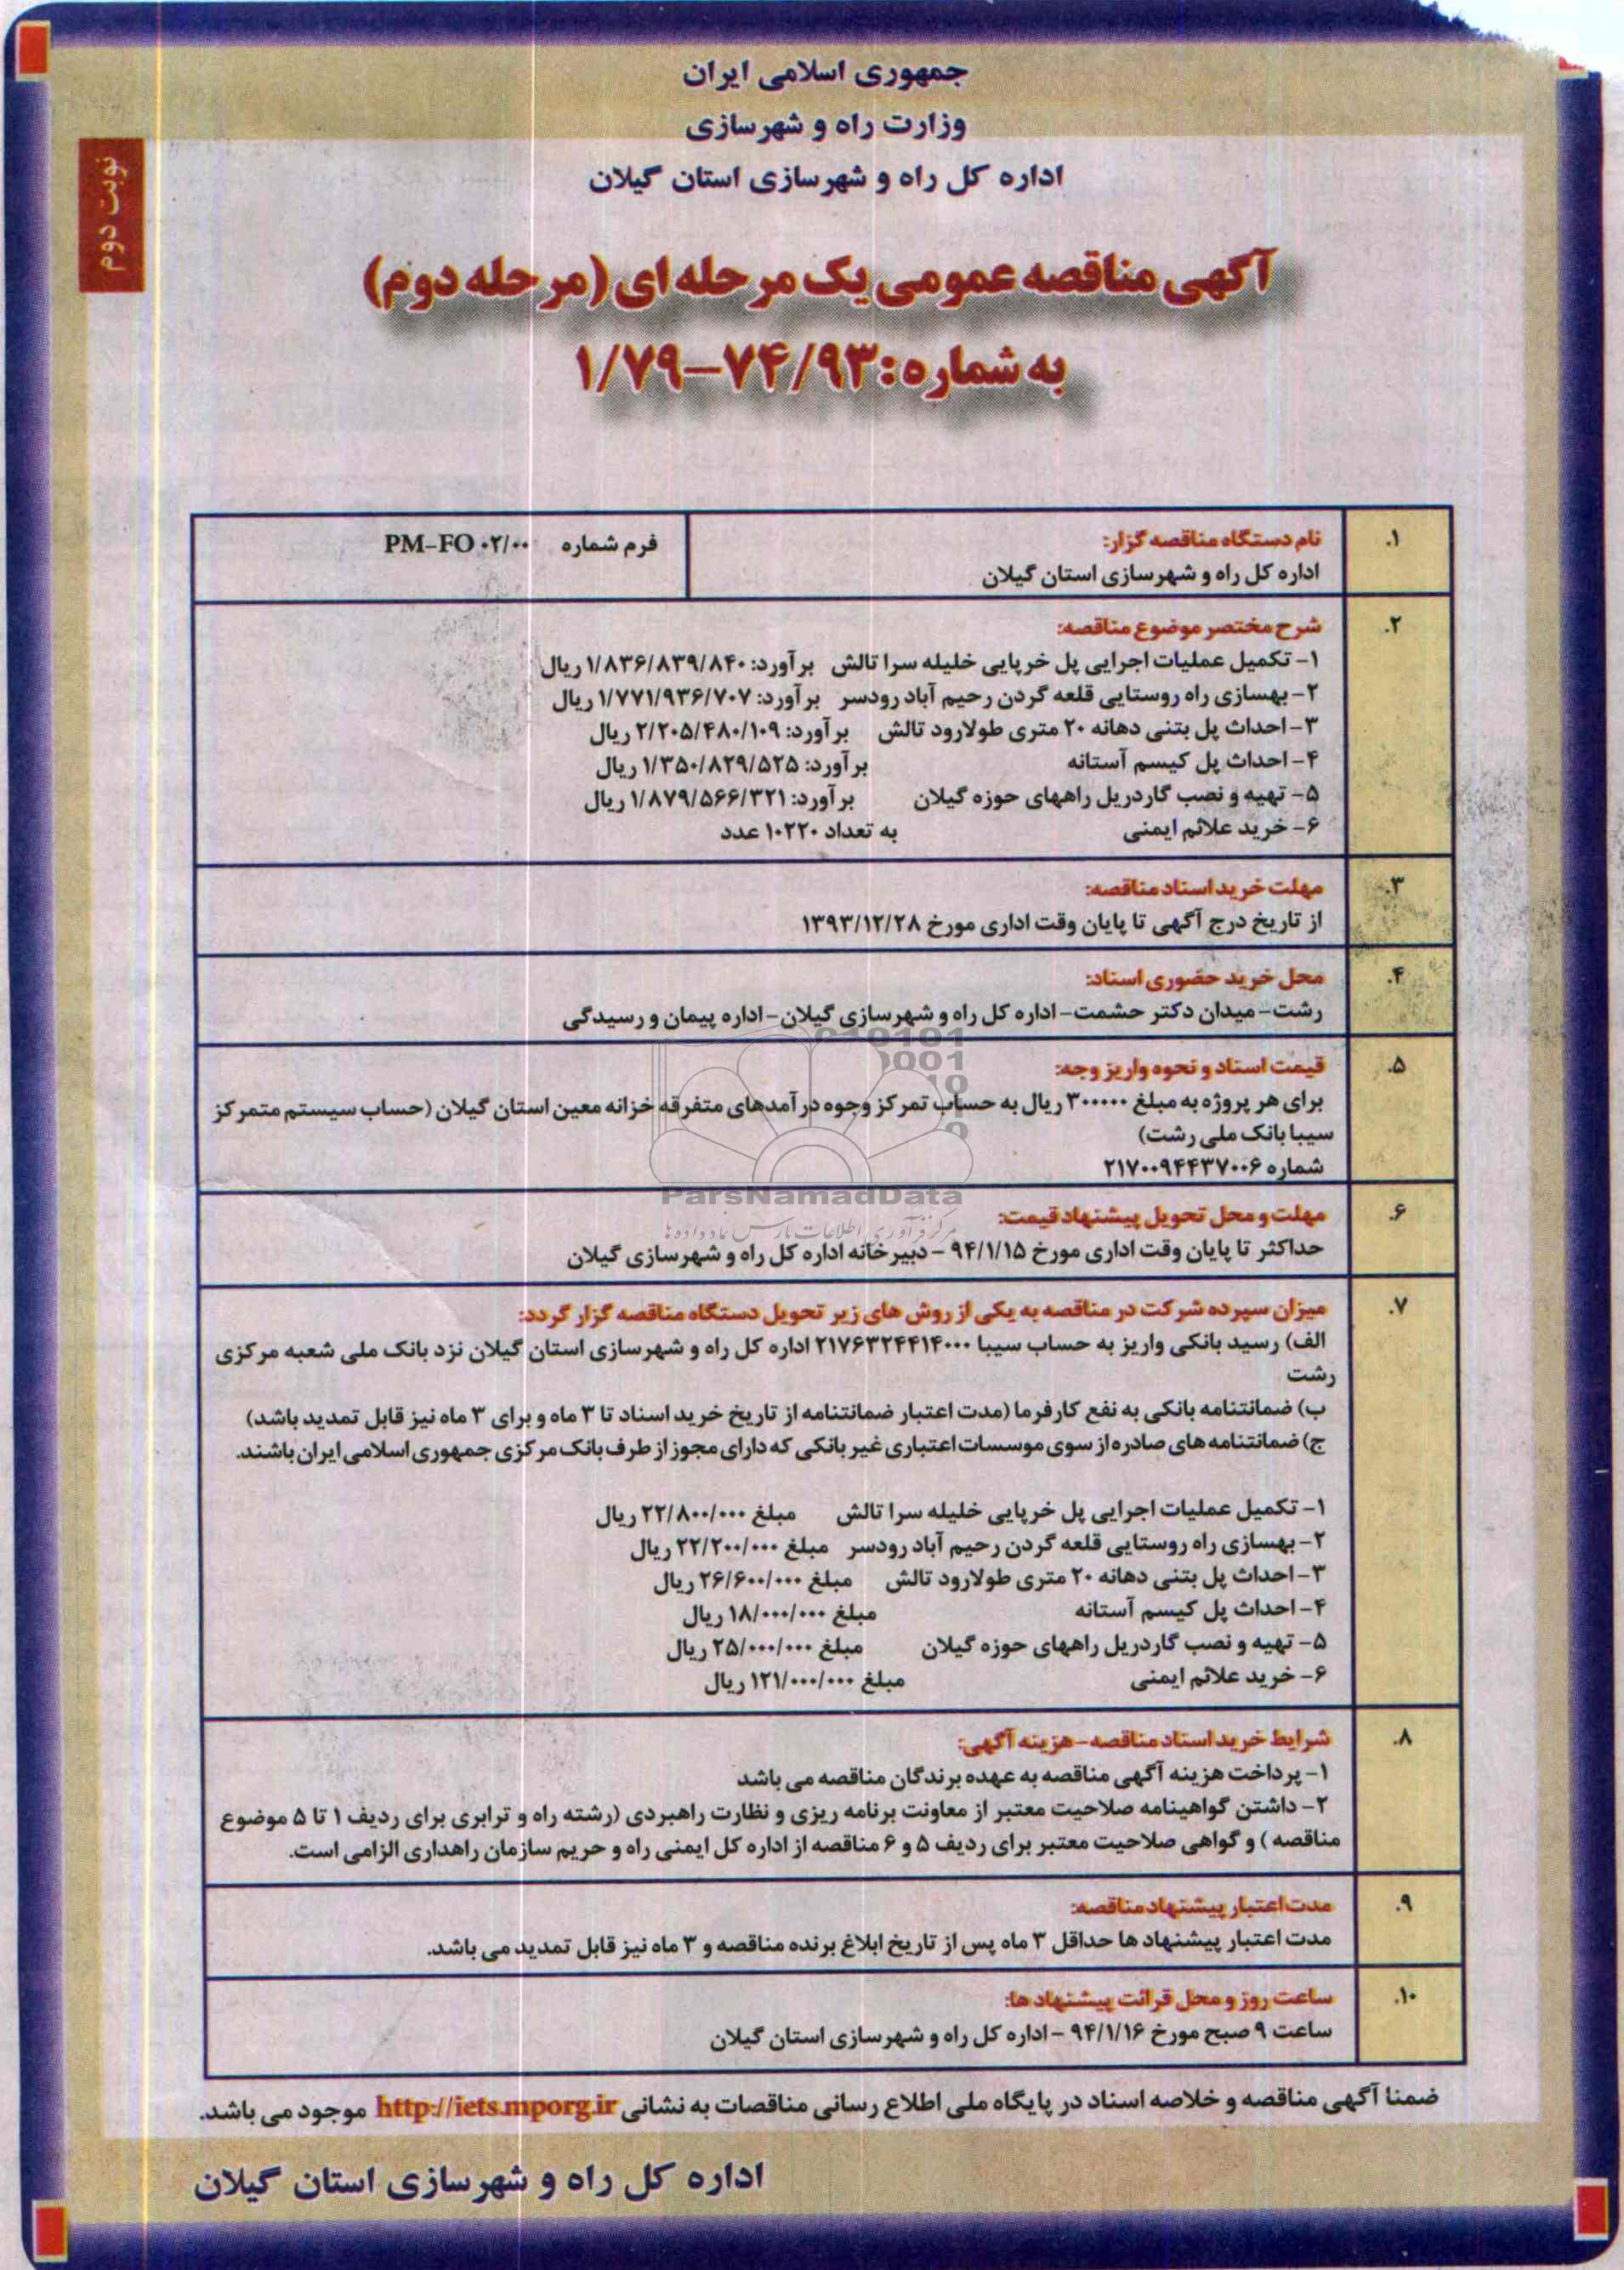 جمهوری اسلامی ایران
وزارت راه و شهرسازی
اداره کل راه و شهرسازی استان گیلان
نوبت دوم
آگهی مناقصه عمومی یک مرحله ای (مرحله دوم)
به شماره: ۷۴/۹۳–۱/۷۹
۱.
نام دستگاه مناقصه گزار:
اداره کل راه و شهرسازی استان گیلان
فرم شماره PM-FO ۰۲/۰۰
۲.
شرح مختصر موضوع مناقصه:
۱- تکمیل عملیات اجرایی پل خرپایی خلیله سرا تالش برآورد: ۱/۸۳۶/۸۳۹/۸۴۰ ریال
۲- بهسازی راه روستایی قلعه گردن رحیم آباد رودسر برآورد: ۱/۷۷۱/۹۳۶/۷۰۷ ریال
۳- احداث پل بتنی دهانه ۲۰ متری طولارود تالش برآورد: ۲/۲۰۵/۴۸۰/۱۰۹ ریال
۴- احداث پل کیسم آستانه برآورد: ۱/۳۵۰/۸۲۹/۵۲۵ ریال
۵- تهیه و نصب گاردریل راههای حوزه گیلان برآورد: ۱/۸۷۹/۵۶۶/۳۲۱ ریال
۶- خرید علائم ایمنی به تعداد ۱۰۲۲۰ عدد
۳.
مهلت خرید اسناد مناقصه:
از تاریخ درج آگهی تا پایان وقت اداری مورخ ۱۳۹۳/۱۲/۲۸
۴.
محل خرید حضوری اسناد:
رشت- میدان دکتر حشمت- اداره کل راه و شهرسازی گیلان- اداره پیمان و رسیدگی
۵.
قیمت اسناد و نحوه واریز وجه:
برای هر پروژه به مبلغ ۳۰۰۰۰۰ ریال به حساب تمرکز وجوه درآمدهای متفرقه خزانه معین استان گیلان (حساب سیستم متمرکز
سیبا بانک ملی رشت)
شماره ۲۱۷۰۰۹۴۴۳۷۰۰۶
ParsNamadData
مرکز فرآوری اطلاعات پارس نماد داده ها
۶.
مهلت و محل تحویل پیشنهاد قیمت:
حداکثر تا پایان وقت اداری مورخ ۹۴/۱/۱۵ - دبیرخانه اداره کل راه و شهرسازی گیلان
۷.
میزان سپرده شرکت در مناقصه به یکی از روش های زیر تحویل دستگاه مناقصه گزار گردد:
الف) رسید بانکی واریز به حساب سیبا ۲۱۷۶۳۲۴۴۱۴۰۰۰ اداره کل راه و شهرسازی استان گیلان نزد بانک ملی شعبه مرکزی
رشت
ب) ضمانتنامه بانکی به نفع کارفرما (مدت اعتبار ضمانتنامه از تاریخ خرید اسناد تا ۳ ماه و برای ۳ ماه نیز قابل تمدید باشد)
ج) ضمانتنامه های صادره از سوی موسسات اعتباری غیر بانکی که دارای مجوز از طرف بانک مرکزی جمهوری اسلامی ایران باشند.
۱- تکمیل عملیات اجرایی پل خرپایی خلیله سرا تالش مبلغ ۲۲/۸۰۰/۰۰۰ ریال
۲- بهسازی راه روستایی قلعه گردن رحیم آباد رودسر مبلغ ۲۲/۲۰۰/۰۰۰ ریال
۳- احداث پل بتنی دهانه ۲۰ متری طولارود تالش مبلغ ۲۶/۶۰۰/۰۰۰ ریال
۴- احداث پل کیسم آستانه مبلغ ۱۸/۰۰۰/۰۰۰ ریال
۵- تهیه و نصب گاردریل راههای حوزه گیلان مبلغ ۲۵/۰۰۰/۰۰۰ ریال
۶- خرید علائم ایمنی مبلغ ۱۲۱/۰۰۰/۰۰۰ ریال
۸.
شرایط خرید اسناد مناقصه - هزینه آگهی:
۱- پرداخت هزینه آگهی مناقصه به عهده برندگان مناقصه می باشد
۲- داشتن گواهینامه صلاحیت معتبر از معاونت برنامه ریزی و نظارت راهبردی (رشته راه و ترابری برای ردیف ۱ تا ۵ موضوع
مناقصه ) و گواهی صلاحیت معتبر برای ردیف ۵ و ۶ مناقصه از اداره کل ایمنی راه و حریم سازمان راهداری الزامی است.
۹.
مدت اعتبار پیشنهاد مناقصه:
مدت اعتبار پیشنهاد ها حداقل ۳ ماه پس از تاریخ ابلاغ برنده مناقصه و ۳ ماه نیز قابل تمدید می باشد.
۱۰.
ساعت روز و محل قرائت پیشنهاد ها:
ساعت ۹ صبح مورخ ۹۴/۱/۱۶ - اداره کل راه و شهرسازی استان گیلان
ضمنا آگهی مناقصه و خلاصه اسناد در پایگاه ملی اطلاع رسانی مناقصات به نشانی http://iets.mporg.ir موجود می باشد.
اداره کل راه و شهرسازی استان گیلان